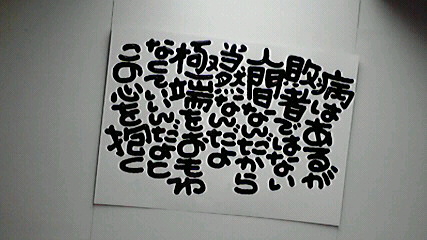 病はあるが
敗者ではない
人間なんだから
当然なんだよ
極端をおもわ
なくていいんだよと
この心を抱く